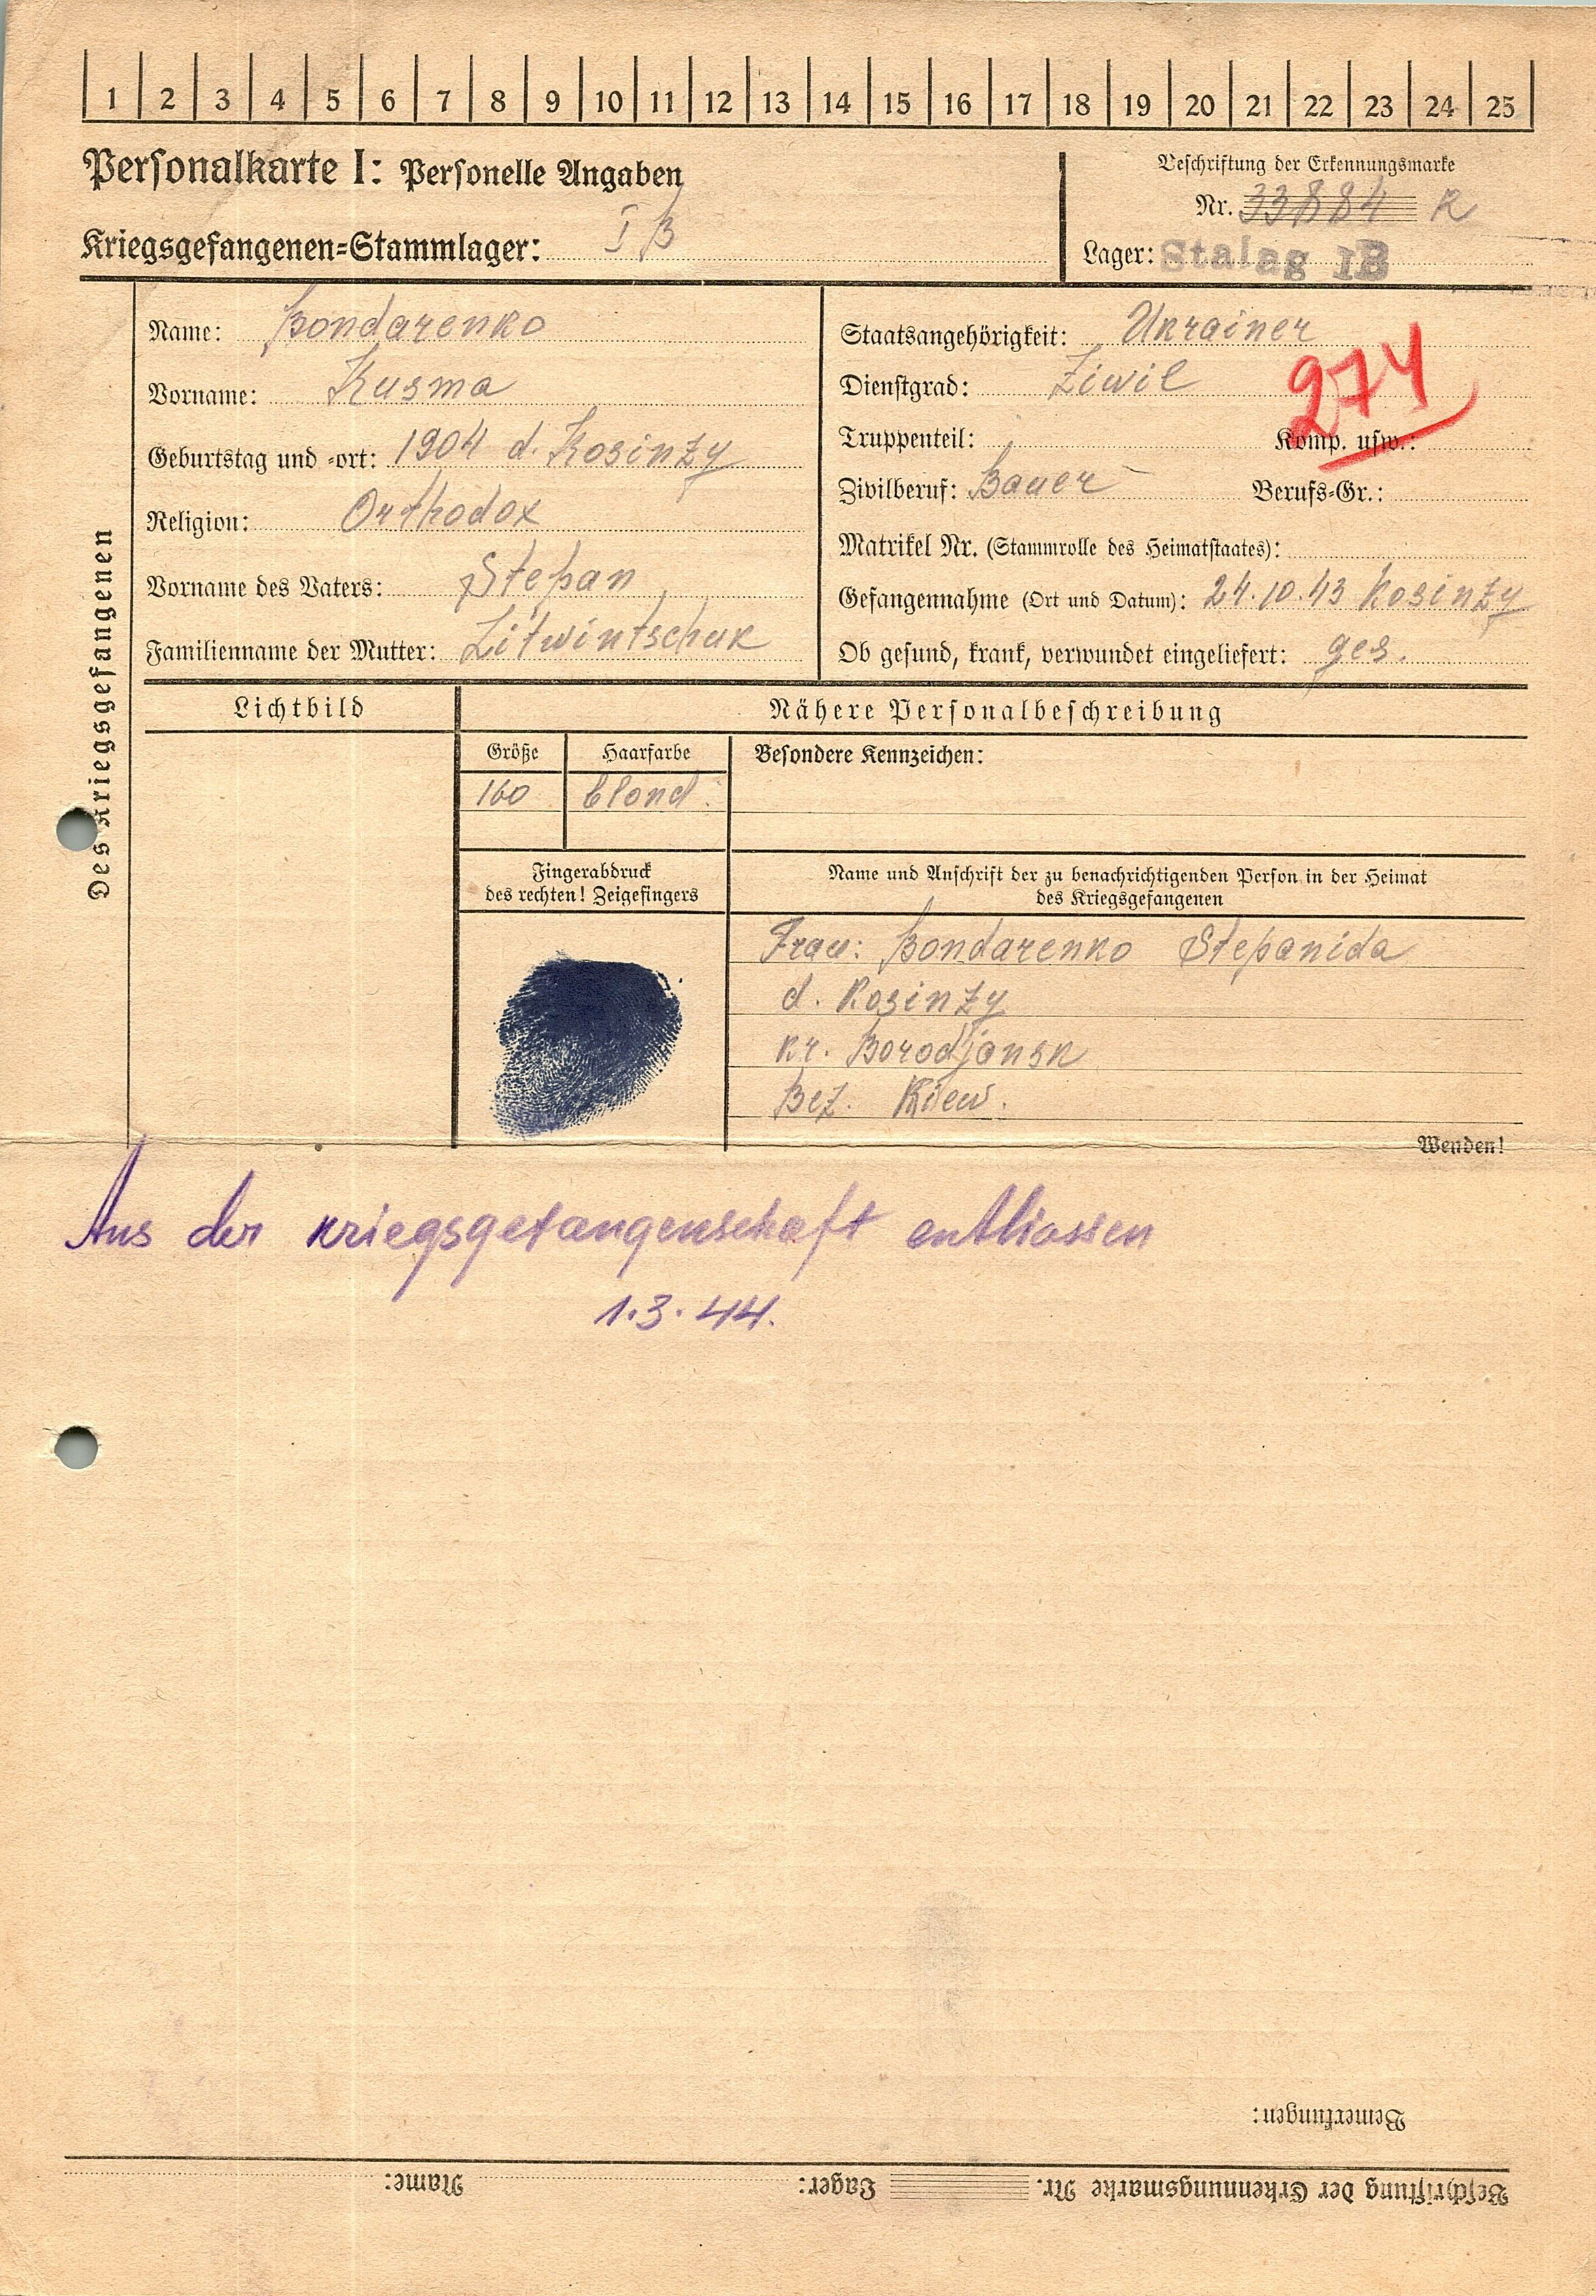 1 2 3 4 5 6 7 8 9 10 11 12 13 14 15 16 17 18 19 20 21 22 23 24 25
Personalkarte I: Personelle Angaben
Kriegsgefangenen=Stammlager: I B
Beschriftung der Erkennungsmarke
Nr. 33884 R
Lager: Stalag IB
Des Kriegsgefangenen
Name: Bondarenko
Vorname: Kusma
Geburtstag und =ort: 1904 d. Kosinzy
Religion: Orthodox
Vorname des Vaters: Stepan
Familienname der Mutter: Litwintschuk
Staatsangehörigkeit: Ukrainer
Dienstgrad: Ziwil
274
Truppenteil: Komp. usw.:
Zivilberuf: Bauer Berufs=Gr.:
Matrikel Nr. (Stammrolle des Heimatstaates):
Gefangennahme (Ort und Datum): 24.10.43 Kosinzy
Ob gesund, krank, verwundet eingeliefert: ges.
Lichtbild
Nähere Personalbeschreibung
Größe Haarfarbe Besondere Kennzeichen:
160 blond.
Fingerabdruck
des rechten! Zeigefingers
Name und Anschrift der zu benachrichtigenden Person in der Heimat
des Kriegsgefangenen
Frau: Bondarenko Stepanida
d. Kosinzy
Kr. Borodjansk
Bez. Kiew.
Wenden!
Aus der Kriegsgefangenschaft entliassen
1.3.44.
Bemerkungen:
Beschriftung der Erkennungsmarke Nr. Lager: Name: